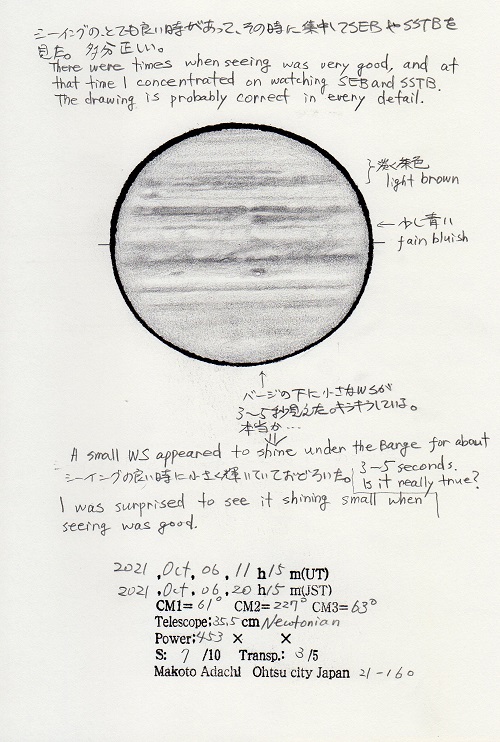 シーイングの、とても良い時があって、その時に集中してSEBやSSTBを
見た。多分正しい。
There were times when seeing was very good, and at
that time I concentrated on watching SEB and SSTB.
The drawing is probably correct in every detail.
淡く茶色
light brown
← 少し青い
fain bluish
↑
バージの下に小さなWSが
3～5秒見えた。キラキラしている。
本当か…
A small WS appeared to shine under the Barge for about
3～5 seconds.
Is it really true?
シーイングの良い時に小さく輝いていておどろいた。
I was surprised to see it shining small when
seeing was good.
2021 , Oct , 06 , 11 h 15 m(UT)
2021 , Oct , 06 , 20 h 15 m(JST)
CM1= 61° CM2= 227° CM3= 63°
Telescope: 35.5 cm Newtonian
Power: 453 × ×
S: 7 /10 Transp.: 3 /5
Makoto Adachi Ohtsu city Japan 21-160